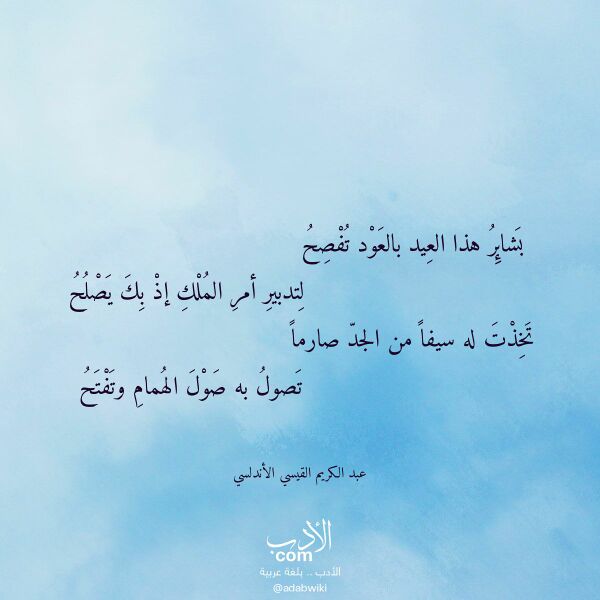 بَشايِرُ هذا العِيد بالعَوْد تُفْصِحُ
لِتدبيرِ أمرِ المُلْكِ إذْ بِكَ يَصْلُحُ
تَخِذْتَ له سيفاً من الجدّ صارماً
تَصولُ به صَوْلَ الهُمامِ وتَفْتَحُ
عبد الكريم القيسي الأندلسي
الأدب
com
الأدب .. بلغة عربية
@adabwiki